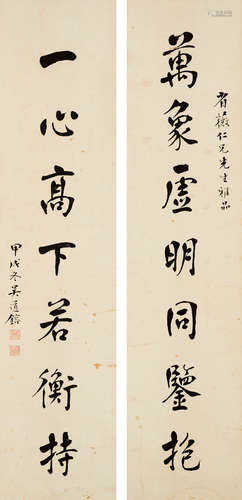 萬象虛明同鑒抱
省薇仁兄先生雅品
一心高下若衡持
甲戌冬吳道鎔